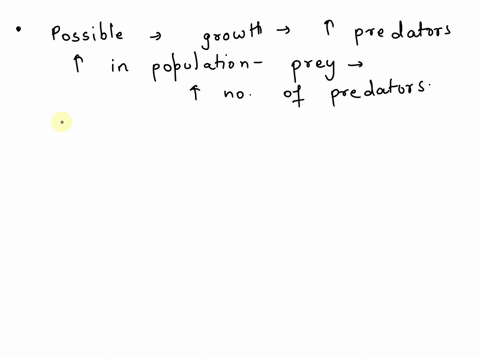 • Possible → growth → ↑ predators
↑ in population - prey →
↑ no. of predators.